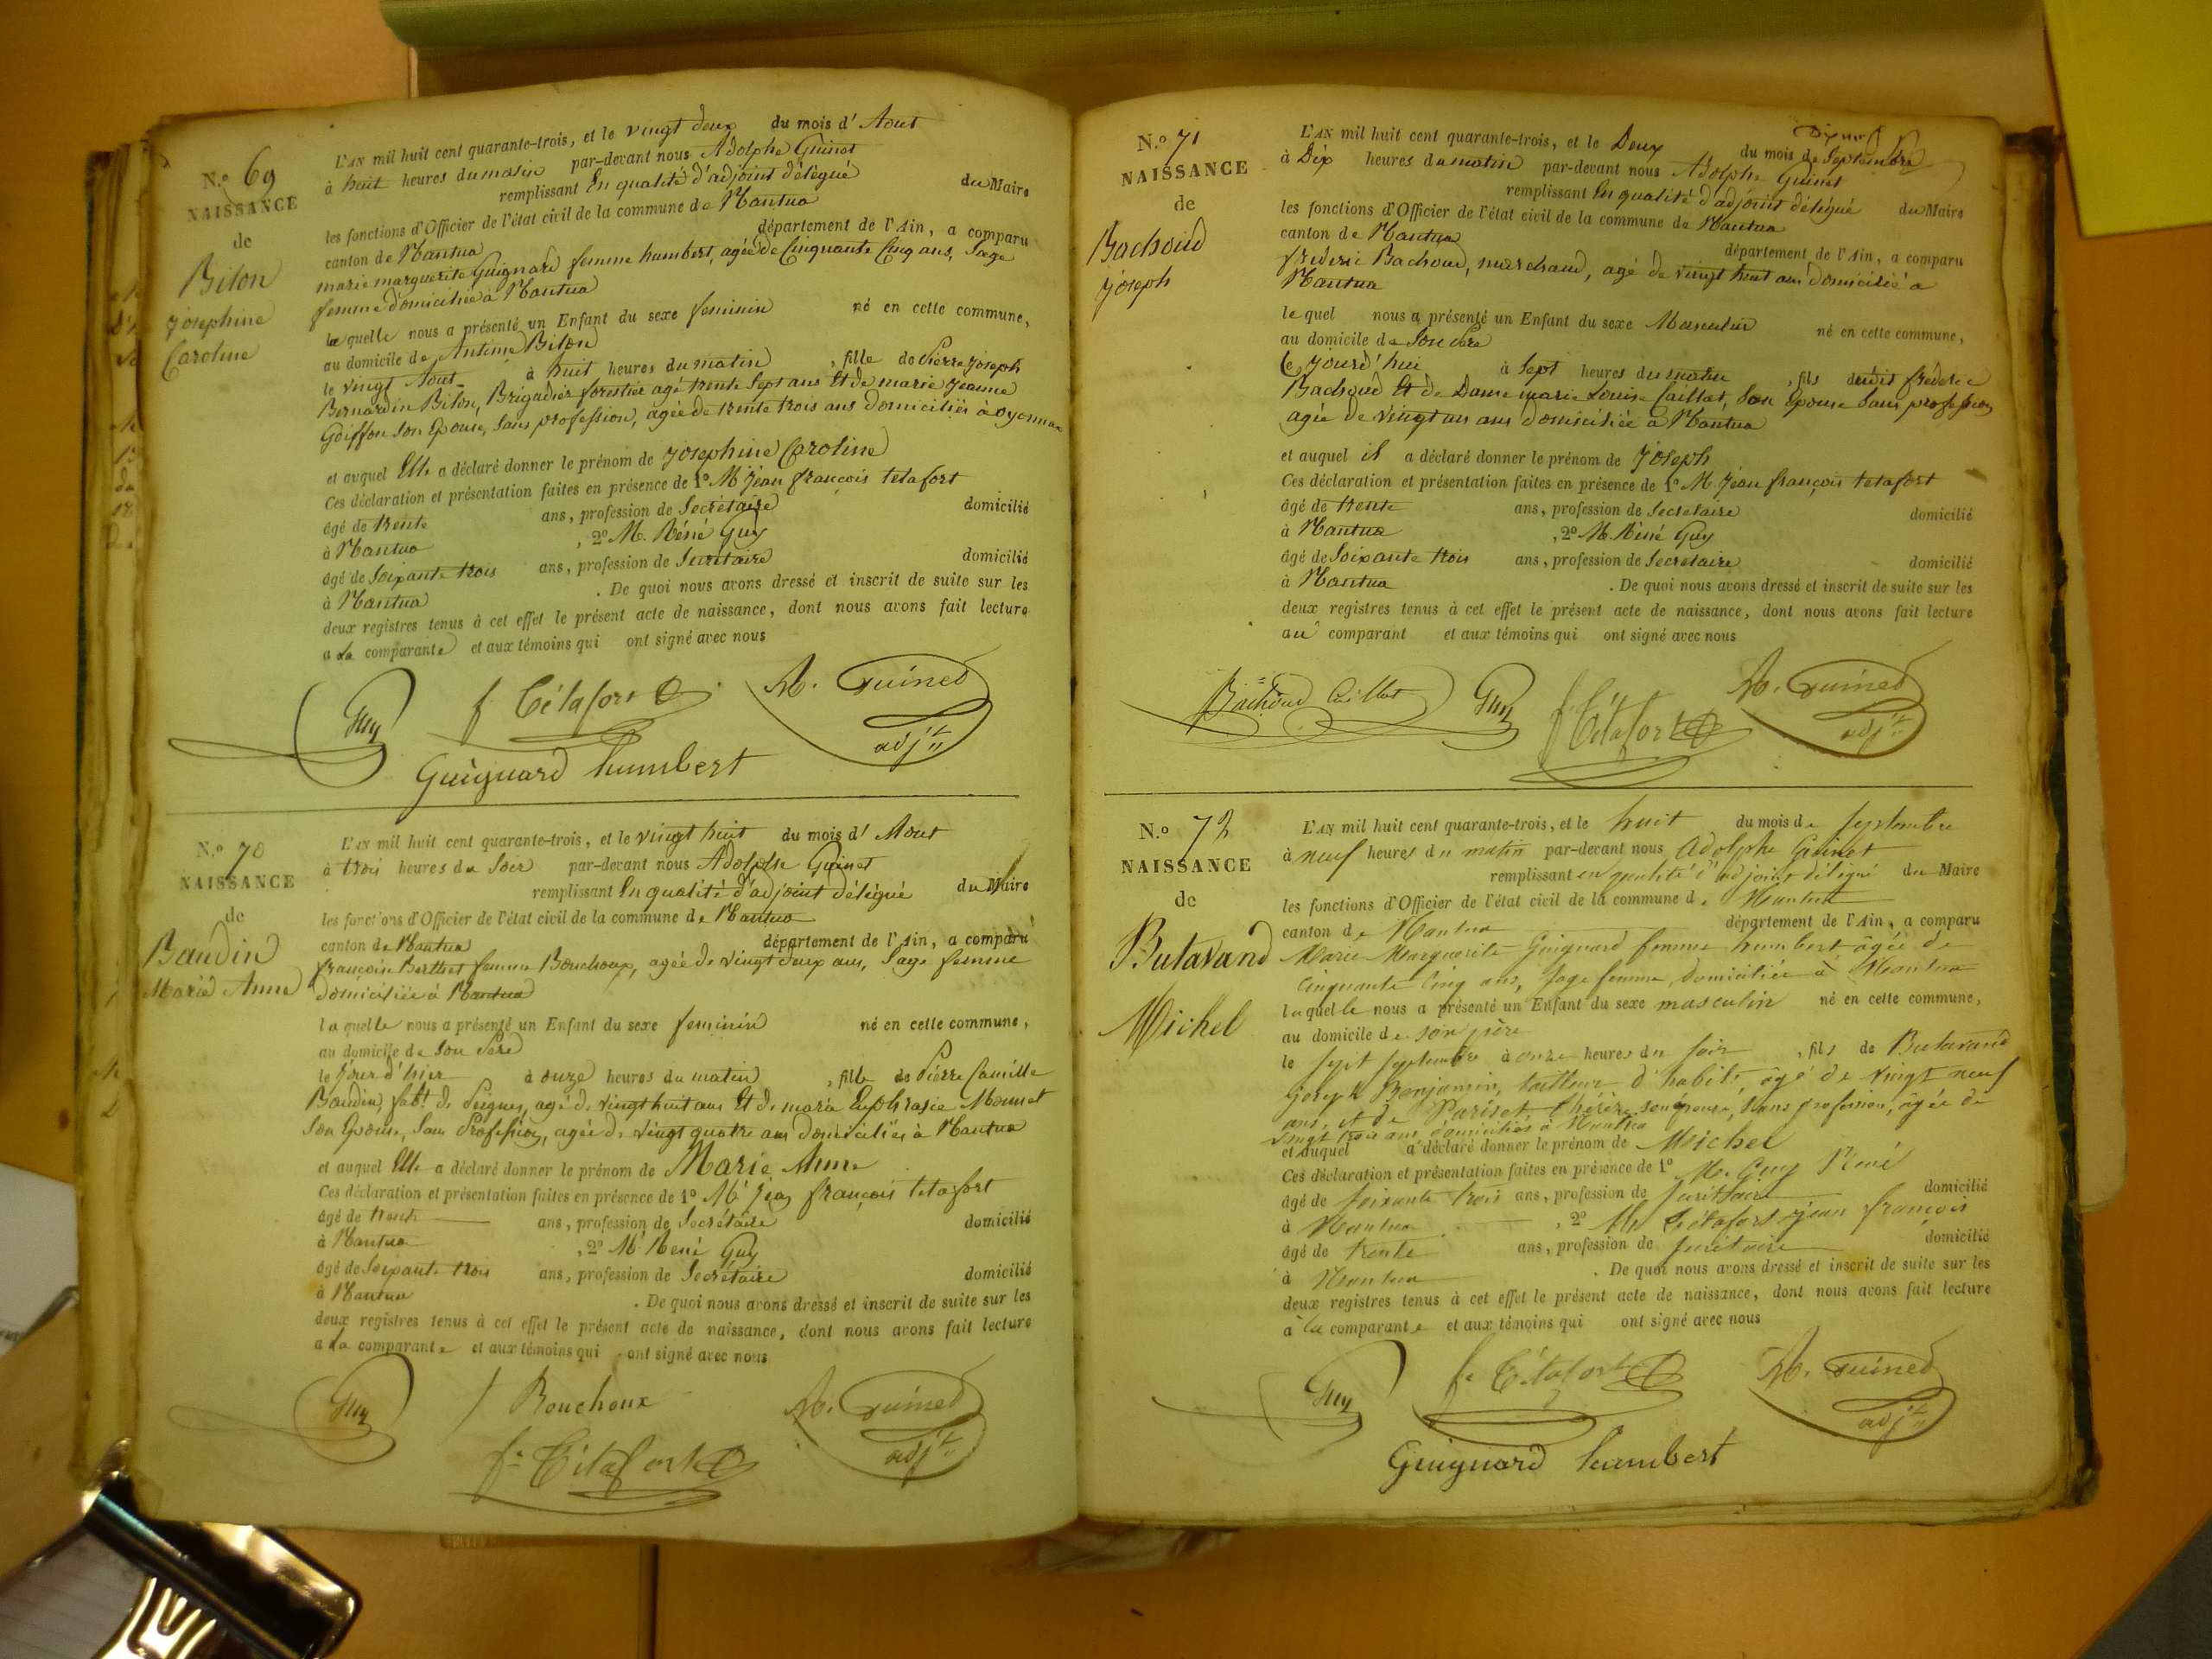 N.º 69
NAISSANCE
de
Biton
Josephine
Caroline
L'AN mil huit cent quarante-trois, et le vingt deux du mois d' Aout
à huit heures du matin par-devant nous Adolphe Guinet
remplissant En qualité d'adjoint délégué du Maire
les fonctions d'Officier de l'état civil de la commune de Nantua
canton de Nantua département de l'Ain, a comparu
marie marguerite Guignard femme humbert, agée de Cinquante Cinq ans, Sage
femme domiciliée à Nantua
laquelle nous a présenté un Enfant du sexe feminin né en cette commune,
au domicile de Antime Biton
le vingt Aout à huit heures du matin, fille de Pierre Joseph
Bernardin Biton, Brigadier forestier agé trente Sept ans Et de marie Jeanne
Goiffon Son Epouse, Sans profession, agée de trente trois ans domiciliés à oyonnax
et auquel Elle a déclaré donner le prénom de Josephine Caroline
Ces déclaration et présentation faites en présence de 1º M Jean françois tetafort
âgé de trente ans, profession de Secrétaire domicilié
à Nantua, 2º M. Réné Guy
âgé de Soixante trois ans, profession de Secrétaire domicilié
à Nantua. De quoi nous avons dressé et inscrit de suite sur les
deux registres tenus à cet effet le présent acte de naissance, dont nous avons fait lecture
a la comparante et aux témoins qui ont signé avec nous
Guy f Tétafort A. Guinet
adjt
Guignard humbert
N.º 70
NAISSANCE
de
Baudin
Marie Anne
L'AN mil huit cent quarante-trois, et le vingt huit du mois d' Aout
à trois heures du Soir par-devant nous Adolphe Guinet
remplissant En qualité d'adjoint délégué du Maire
les fonctions d'Officier de l'état civil de la commune de Nantua
canton de Nantua département de l'Ain, a comparu
françoise Berthet femme Bouchoux, agée de vingt deux ans, Sage femme
domiciliée à Nantua
laquelle nous a présenté un Enfant du sexe feminin né en cette commune,
au domicile de Son Père
le Jour d'hier à onze heures du matin, fille de Pierre Camille
Baudin, fabt de Peignes, agé de vingt huit ans Et de maria Euphrasie Monnet
Son Epouse, Sans Profession, agée de vingt quatre ans domiciliés à Nantua
et auquel Elle a déclaré donner le prénom de Marie Anne
Ces déclaration et présentation faites en présence de 1º M Jean françois tetafort
âgé de trente ans, profession de Secrétaire domicilié
à Nantua, 2º M René Guy
âgé de Soixante trois ans, profession de Secrétaire domicilié
à Nantua. De quoi nous avons dressé et inscrit de suite sur les
deux registres tenus à cet effet le présent acte de naissance, dont nous avons fait lecture
a la comparante et aux témoins qui ont signé avec nous
Guy f Bouchoux A. Guinet
adjt
f. Tétafort
N.º 71
NAISSANCE
de
Bachoud
Joseph
L'AN mil huit cent quarante-trois, et le Deux du mois de Septembre
à Dix heures du matin par-devant nous Adolphe Guinet
remplissant En qualité d'adjoint délégué du Maire
les fonctions d'Officier de l'état civil de la commune de Nantua
canton de Nantua département de l'Ain, a comparu
frederic Bachoud, marchand, agé de vingt huit ans domicilié à
Nantua
lequel nous a présenté un Enfant du sexe Masculin né en cette commune,
au domicile de Son Père
Ce Jourd'hui à Sept heures du matin, fils dudit frederic
Bachoud Et de Dame marie Louise Caillat, Son Epouse Sans profession
agée de vingt un ans domiciliée à Nantua
et auquel il a déclaré donner le prénom de Joseph
Ces déclaration et présentation faites en présence de 1º M. Jean françois tetafort
âgé de trente ans, profession de Secretaire domicilié
à Nantua, 2º M. Réné Guy
âgé de Soixante trois ans, profession de Secretaire domicilié
à Nantua. De quoi nous avons dressé et inscrit de suite sur les
deux registres tenus à cet effet le présent acte de naissance, dont nous avons fait lecture
au comparant et aux témoins qui ont signé avec nous
Bachoud Caillat Guy f Tétafort A. Guinet
adjt
N.º 72
NAISSANCE
de
Butavand
Michel
L'AN mil huit cent quarante-trois, et le huit du mois de septembre
à neuf heures du matin par-devant nous Adolphe Guinet
remplissant en qualité d'adjoint délégué du Maire
les fonctions d'Officier de l'état civil de la commune de Nantua
canton de Nantua département de l'Ain, a comparu
Marie Marguerite Guignard femme humbert, âgée de
cinquante cinq ans, sage femme, domiciliée à Nantua
laquelle nous a présenté un Enfant du sexe masculin né en cette commune,
au domicile de son père
le sept septembre à onze heures du soir, fils de Butavand
Joseph Benjamin, tailleur d'habits, âgé de vingt neuf
ans, et de Pariset thérèse son épouse, sans profession, âgée de
vingt trois ans domiciliés à Nantua
et auquel a déclaré donner le prénom de Michel
Ces déclaration et présentation faites en présence de 1º M. Guy René
âgé de soixante trois ans, profession de secrétaire domicilié
à Nantua, 2º M. Tétafort jean françois
âgé de trente ans, profession de secrétaire domicilié
à Nantua. De quoi nous avons dressé et inscrit de suite sur les
deux registres tenus à cet effet le présent acte de naissance, dont nous avons fait lecture
à la comparante et aux témoins qui ont signé avec nous
Guy f. Tétafort A. Guinet
adjt
Guignard humbert